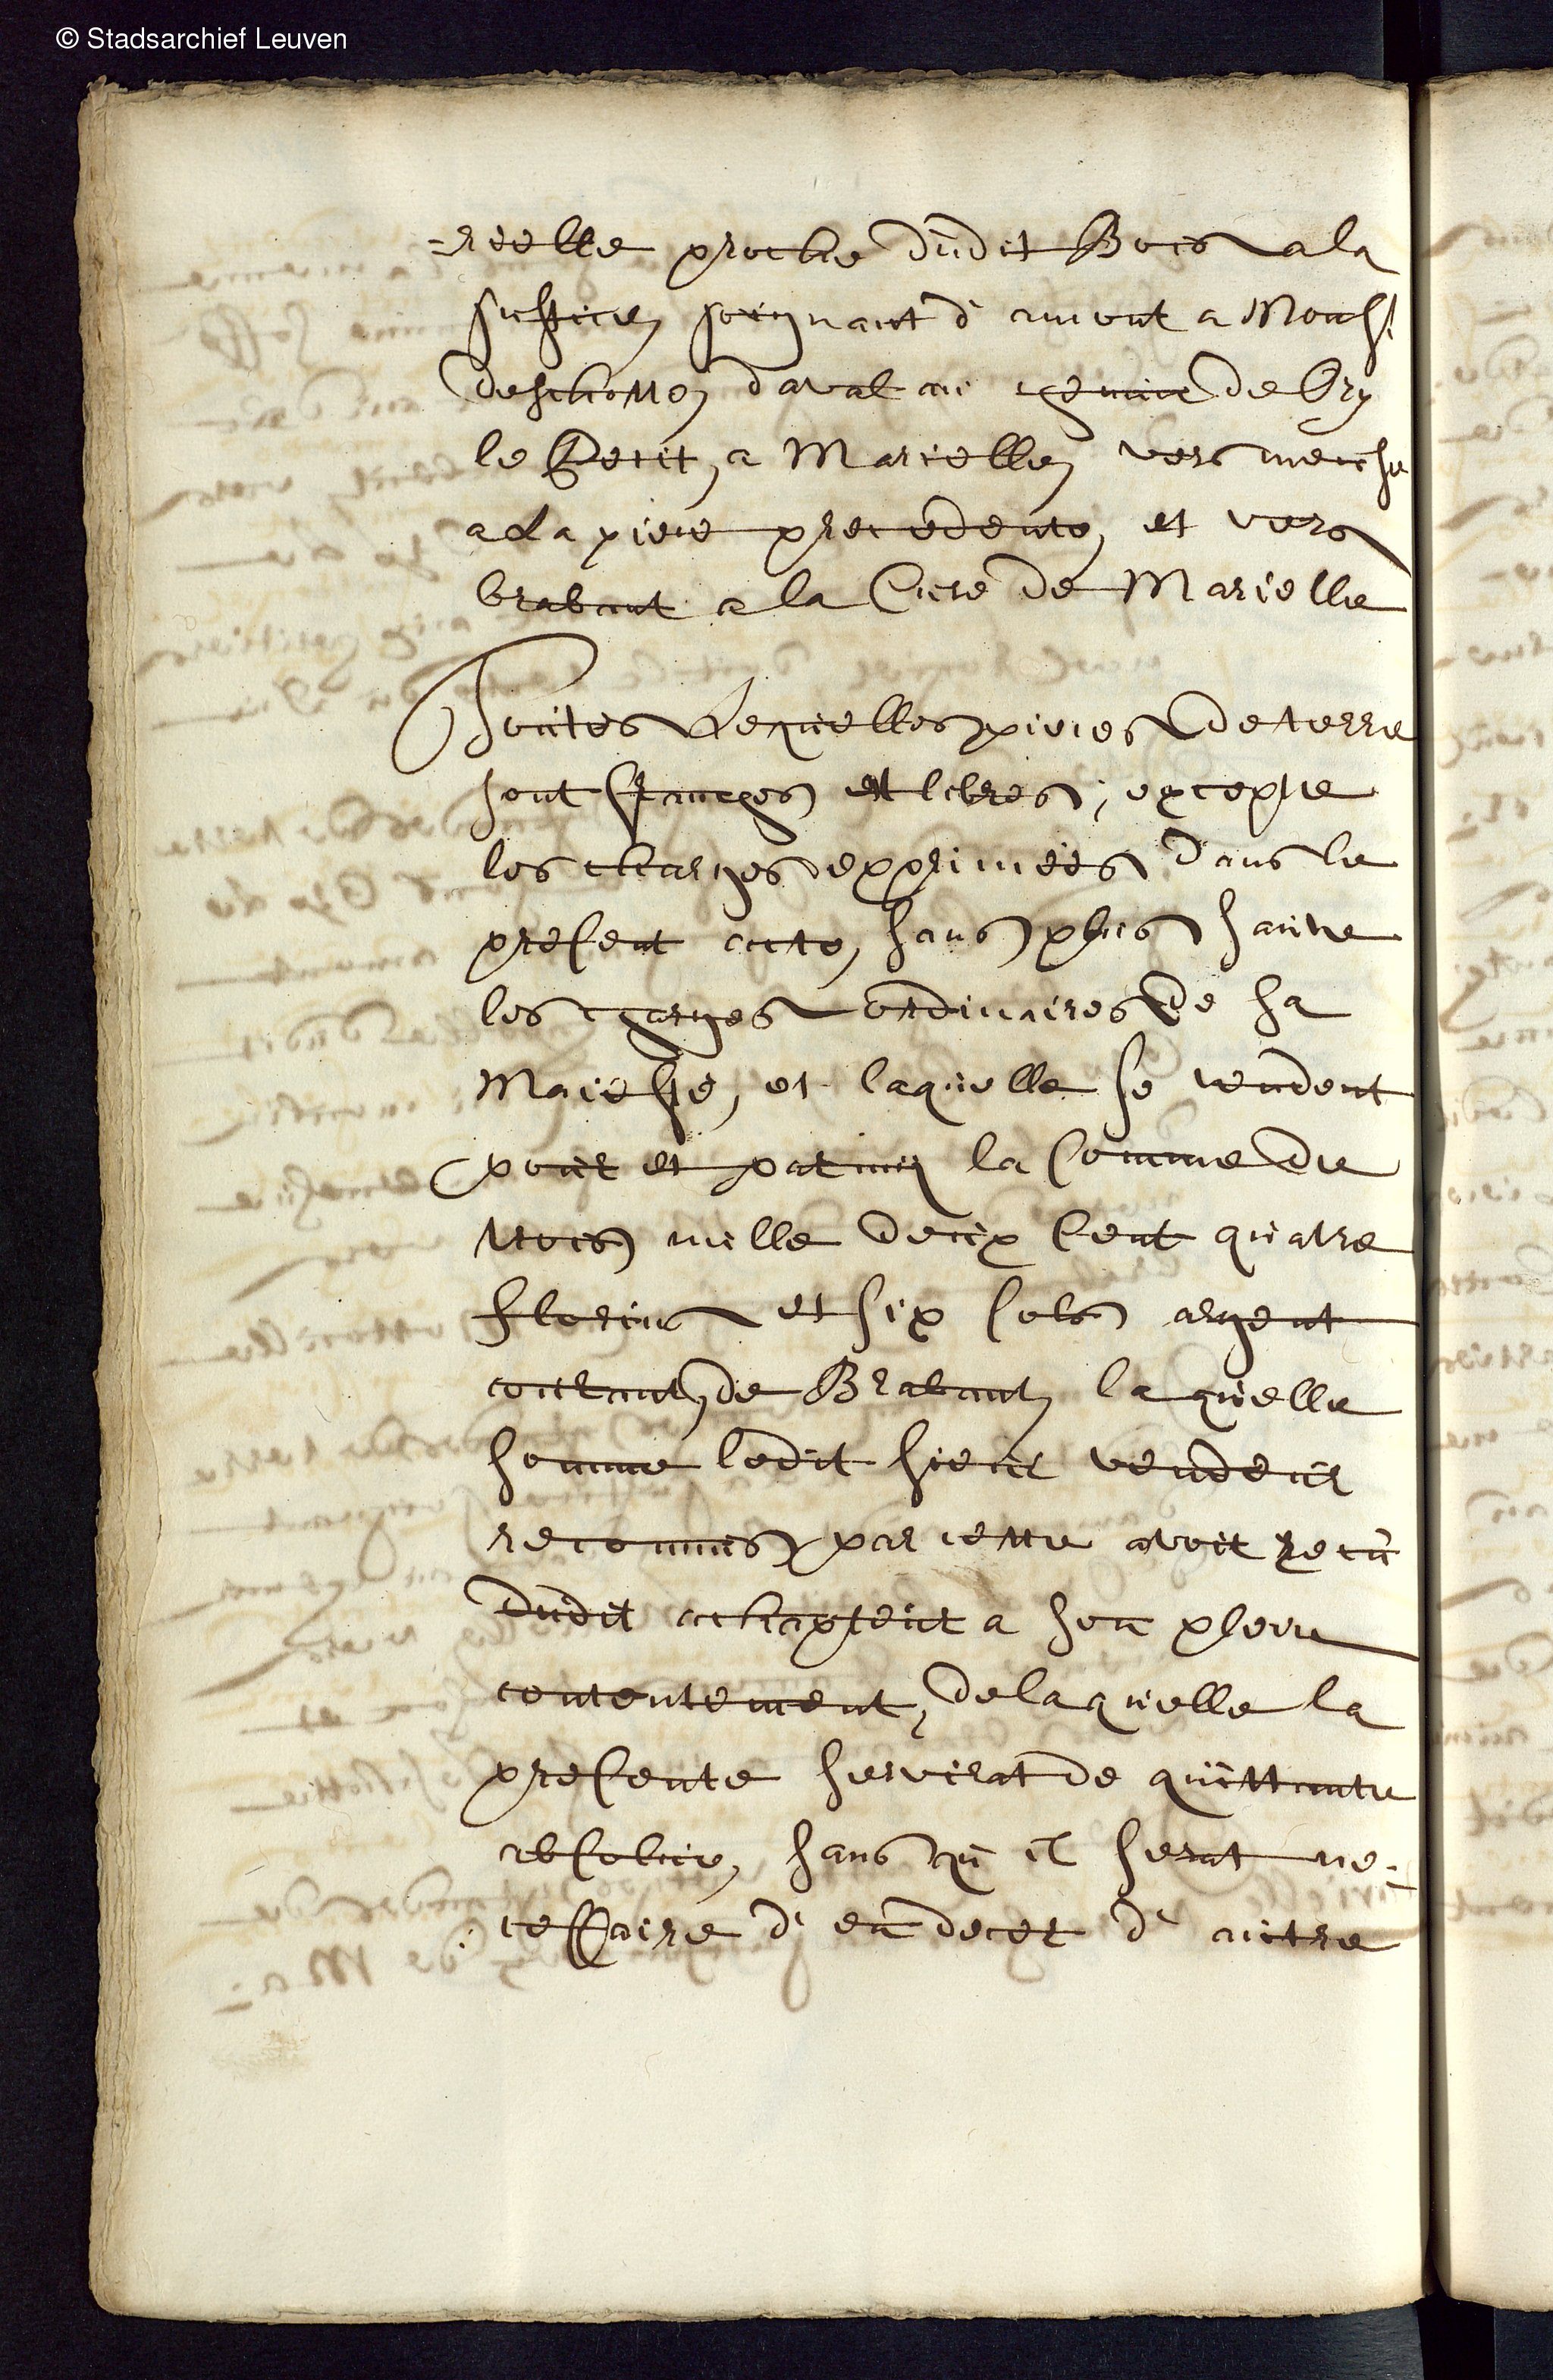 © Stadsarchief Leuven
-rielle proche dudit Bois a la
justice joignant d'amont a Monsr
deschotte, d'aval au chemin de Bry
le Petit, a Marielle, vers meuse
a la piece precedente, et vers
brabant a la Cure de Marielle
Toutes lesquelles pieces de terre
sont franches et libres, excepte
les charges exprimées dans le
present acte, sans plus sauve
les charges ordinaires de sa
Maieste, et laquelle se vendent
pour et parmi la somme de
trois mille deux cent quatre
florins et six sols argent
courant, de Brabant, laquelle
somme ledit sieur vendeur
reconnus par cette avoir recu
dudit achapteur a son plein
contentement, de laquelle la
presente servirat de quittantie
absolue, sans qu'il serat ne-
cessaire d'en docer d'autre